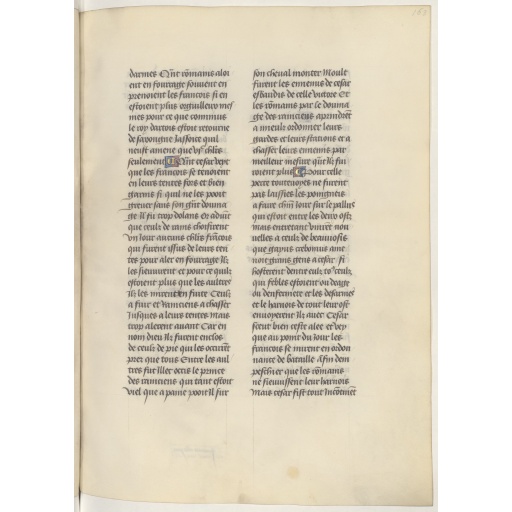 darmes Qñt rõmains aloi
ent en fourrage souuent en
prenoient les francois si en
estoient plus orguilleux mes
mes pour ce que commius
le roy dartois estoit retourne
de sassongne Jassoit quil
neust amene que vᶜ chĩrs
seulement Quãt cesar veyt
que les francois se tenoient
en leurs tentes fors et bien
garnis si quil ne les pooit
greuer sans son grãt douma
ge Il fu trop dolans Et aduĩt
que ceulz de rains choisirent
vn Jour aucuns chĩrs frãcois
qui furent issus de leurs ten
tes pour aler en fourrage Ilz
les sieuuirent et pour ce quilz
estoient plus que les aultres
Ilz les mirent en fuite Ceulz
a fuir et Rainciens a chasser
Jusques a leurs tentes mais
trop alerent auant Car en
nom dieu Ilz furent enclos
de ceulz de pie qui les occirẽt
pres que tous Entre les aul
tres fut Illec occis le prince
des rainciens qui tant estoit
viel que a paine pooit Il sur
son cheual monter Moult
furent les ennemis de cesar
esbaudis de celle victore Et
les rõmains par le douma
ge des rainciens aprindrẽt
a mieulx ordonner leurs
gardes et leurs stations et a
chasser leurs ennemis par
meilleur mesure quilz nen fai
soient plus Pour celle
perte touteuoyes ne furent
pas laissies les poingneis
a faire chũn Jour sur le pallus
qui estoit entre les deux ostz
mais entretant vinrẽt nou
uelles a ceulz de beauuoisis
que gayus trebonius ame
noit grans gens a cesar si
hosterent dentre eulz toᵘ ceulz
qui febles estoient ou daage
ou denfermete et les desarmes
et le harnois de tout leur ost
enuoyerent Ilz auec Cesar
sceut bien ceste alee et vey
que au point du Jour les
francois se mirent en ordon
nance de bataille Afin dem
peschier que les rõmains
ne sieuuissent leur harnois
Mais cesar fist tout Incõtinẽt